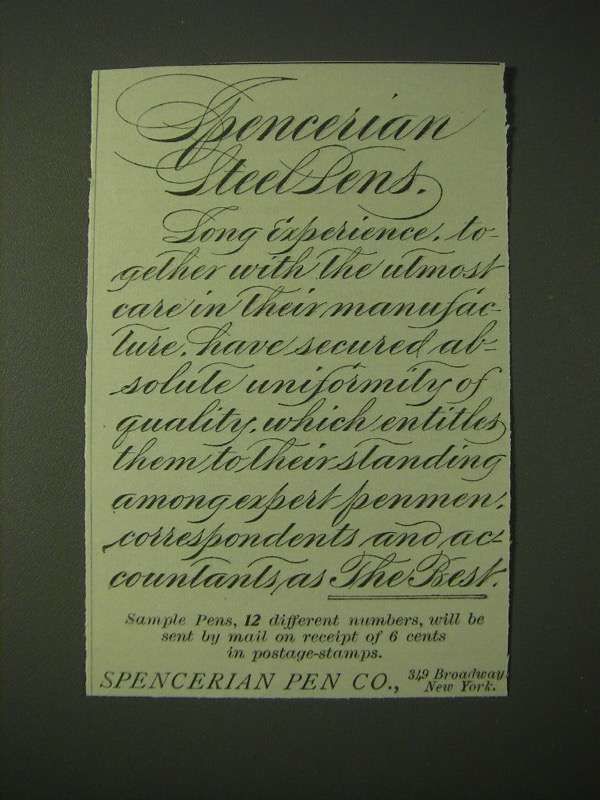 Spencerian
Steel Pens.
Long Experience, to-
gether with the utmost
care in their manufac-
ture, have secured ab-
solute uniformity of
quality, which entitles
them to their standing
among expert penmen,
correspondents and ac-
countants, as The Best.
Sample Pens, 12 different numbers, will be
sent by mail on receipt of 6 cents
in postage-stamps.
SPENCERIAN PEN CO., 349 Broadway
New York.